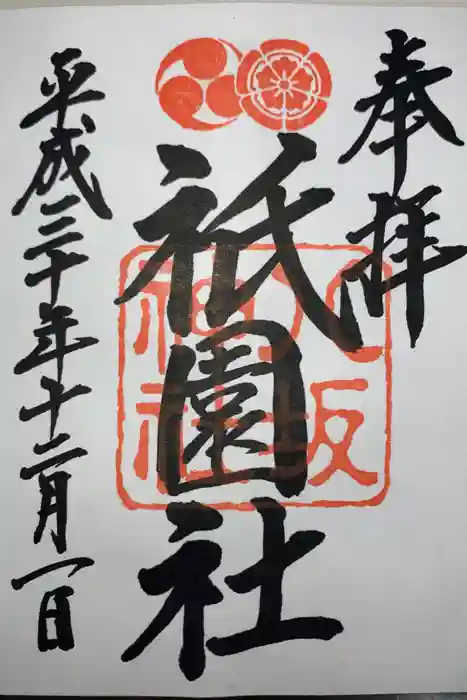 奉拝
祇園社
八坂神社
平成三十年十二月一日